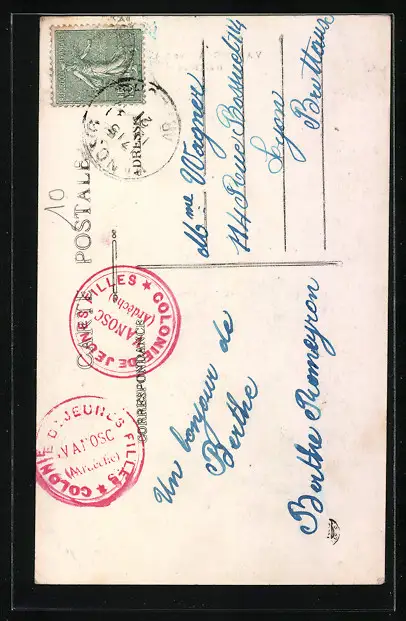 CARTE POSTALE
CORRESPONDANCE
ADRESSE
10
COLONIE DE JEUNES FILLES ★
VANOSC
(Ardèche)
COLONIE DE JEUNES FILLES ★
VANOSC
(Ardèche)
Un bonjour de
Berthe
Berthe Romeyron
Mme Wagner
114 Rue
Lyon
Brotteaux